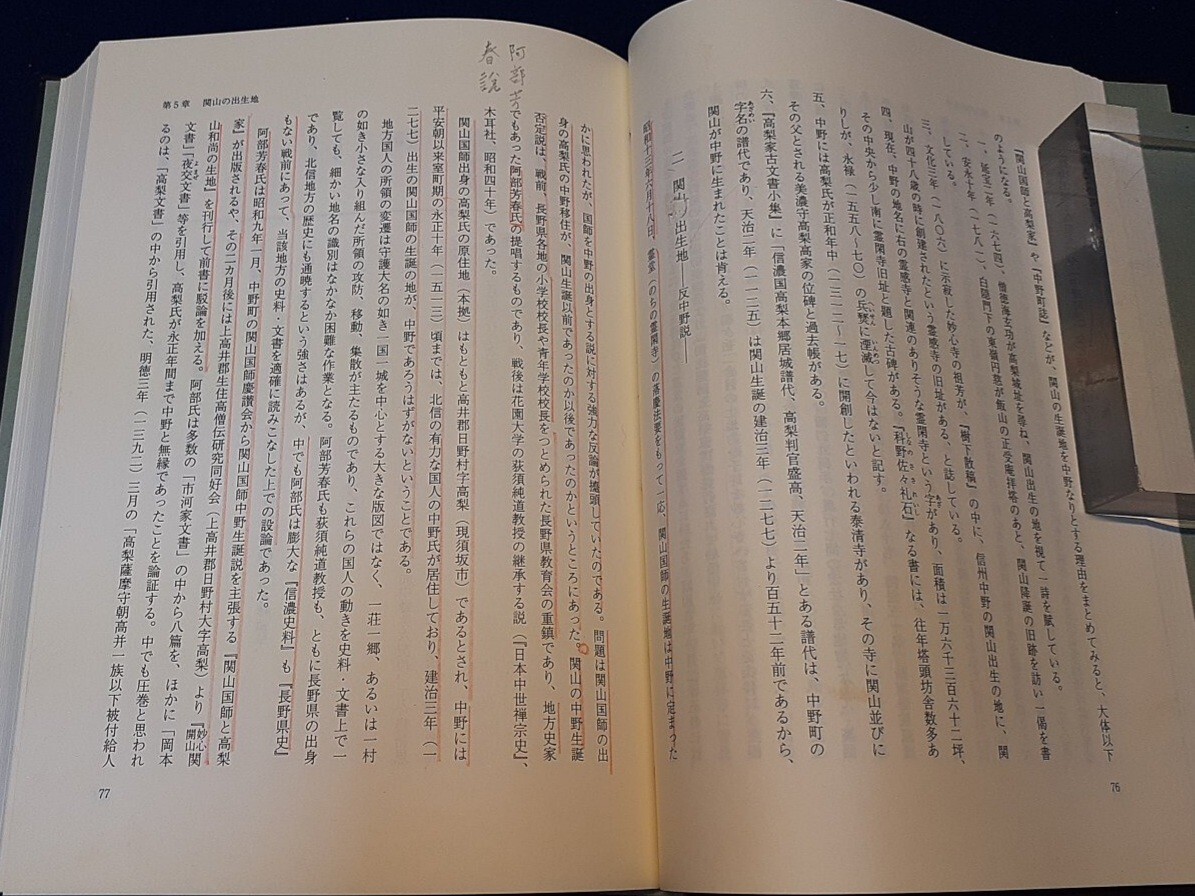 『関山国師と高梨家』や『中野町誌』などが、関山の生誕地を中野なりとする理由をまとめてみると、大体以下
のようになる。
一、延宝二年（一六七四）、僧徳海玄功が高梨城址を尋ね、関山出生の地を視て一詩を賦している。
二、安永十年（一七八一）、白隠門下の東嶺円慈が飯山の正受庵拝塔のあと、関山降誕の旧跡を訪い一偈を書
している。
三、文化三年（一八〇六）に示寂した妙心寺の祖芳が、『樹下散稿』の中に、信州中野の関山出生の地に、関
山が四十八歳の時に創建されたという霊感寺の旧址がある、と誌している。
四、現在、中野の地名に右の霊感寺と関連のありそうな霊閑寺という字があり、面積は一万六千三百六十二坪、
その中央から少し南に霊閑寺旧址と題した古碑がある。『科野佐々礼石』なる書には、往年塔頭坊舎数多あ
りしが、永禄（一五五八〜七〇）の兵燹に湮滅して今はないと記す。
五、中野には高梨氏が正和年中（一三一二〜一七）に開創したといわれる泰清寺があり、その寺に関山並びに
その父とされる美濃守高梨高家の位碑と過去帳がある。
六、『高梨家古文書小集』に「信濃国高梨本郷居城譜代、高梨判官盛高、天治二年」とある譜代は、中野町の
字名の譜代であり、天治二年（一一二五）は関山生誕の建治三年（一二七七）より百五十二年前であるから、
関山が中野に生まれたことは肯える。
二 関山の出生地――反中野説――
昭和十三年六月十八日、霊堂（のちの霊閑寺）の落慶法要をもって一応、関山国師の生誕地は中野に定まった
76
第5章 関山の出生地
阿部芳
春説
かに思われたが、国師を中野の出身とする説に対する強力な反論が擡頭していたのである。問題は関山国師の出
身の高梨氏の中野移住が、関山生誕以前であったのか以後であったのかというところにあった。関山の中野生誕
否定説は、戦前、長野県各地の小学校校長や青年学校校長をつとめられた長野県教育会の重鎮であり、地方史家
でもあった阿部芳春氏の提唱するものであり、戦後は花園大学の荻須純道教授の継承する説（『日本中世禅宗史』、
木耳社、昭和四十年）であった。
関山国師出身の高梨氏の原住地（本拠）はもともと高井郡日野村字高梨（現須坂市）であるとされ、中野には
平安朝以来室町期の永正十年（一五一三）頃までは、北信の有力な国人の中野氏が居住しており、建治三年（一
二七七）出生の関山国師の生誕の地が、中野であろうはずがないということである。
地方国人の所領の変遷は守護大名の如き一国一城を中心とする大きな版図ではなく、一荘一郷、あるいは一村
の如き小さな入り組んだ所領の攻防、移動、集散が主たるものであり、これらの国人の動きを史料・文書上で一
覧しても、細かい地名の識別はなかなか困難な作業となる。阿部芳春氏も荻須純道教授も、ともに長野県の出身
であり、北信地方の歴史にも通暁するという強さはあるが、中でも阿部氏は膨大な『信濃史料』も『長野県史』
もない戦前にあって、当該地方の史料・文書を適確に読みこなした上での設論であった。
阿部芳春氏は昭和九年一月、中野町の関山国師慶讃会から関山国師中野生誕説を主張する『関山国師と高梨
家』が出版されるや、その二カ月後には上高井郡生住高僧伝研究同好会（上高井郡日野村大字高梨）より『妙心開山関
山和尚の生地』を刊行して前書に駁論を加える。阿部氏は多数の「市河家文書」の中から八篇を、ほかに「岡本
文書」「夜交文書」等を引用し、高梨氏が永正年間まで中野と無縁であったことを論証する。中でも圧巻と思われ
るのは、「高梨文書」の中から引用された、明徳三年（一三九二）三月の「高梨薩摩守朝高并一族以下被付給人
77